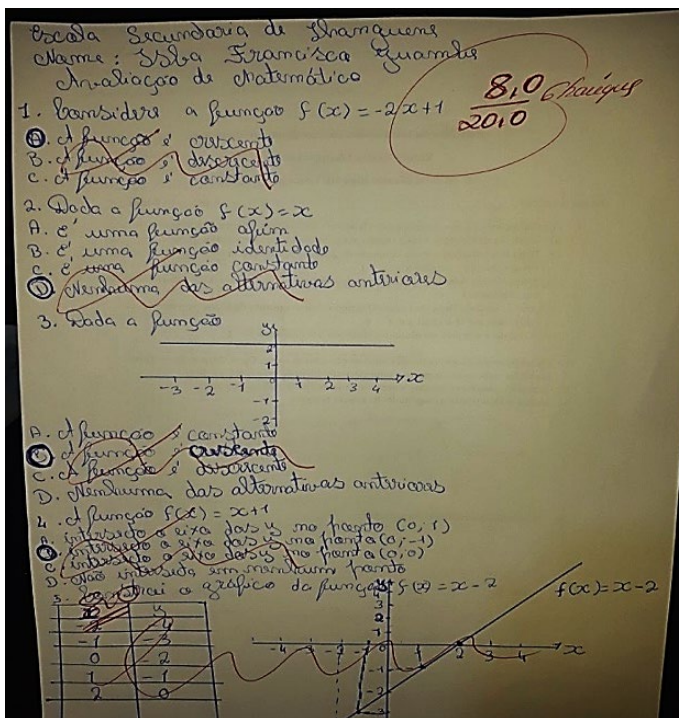 Escola Secundaria de Nhanguene
Name: Isba Francisca Guambe
Avaliação de Matemática
8,0
20,0
1. Considere a função f(x) = -2x+1
A. A função é crescente
B. A função é decrescente
C. A função é constante
2. Dada a função f(x)=x
A. é uma função afim
B. É uma função identidade
C. É uma função constante
D. Nenhuma das alternativas anteriores
3. Dada a função
y
2
1
-3 -2 -1 1 2 3 4 x
-1
-2
A. A função é constante
B. A função é crescente
C. A função é decrescente
D. Nenhuma das alternativas anteriores
4. A função f(x) = x+1
A. intersecta o eixo das y no ponto (0; 1)
B. intersecta o eixo das y no ponto (0; -1)
C. intersecta o eixo das y no ponto (0; 0)
D. Não intersecta em nenhum ponto
5. Construi o gráfico da função f(x) = x-2
f(x)=x-2
x y
-2 -4
-1 -3
0 -2
1 -1
2 0
3
2
1
-4 -3 -2 -1 0 1 2 3 4 x
-1
-2
-3